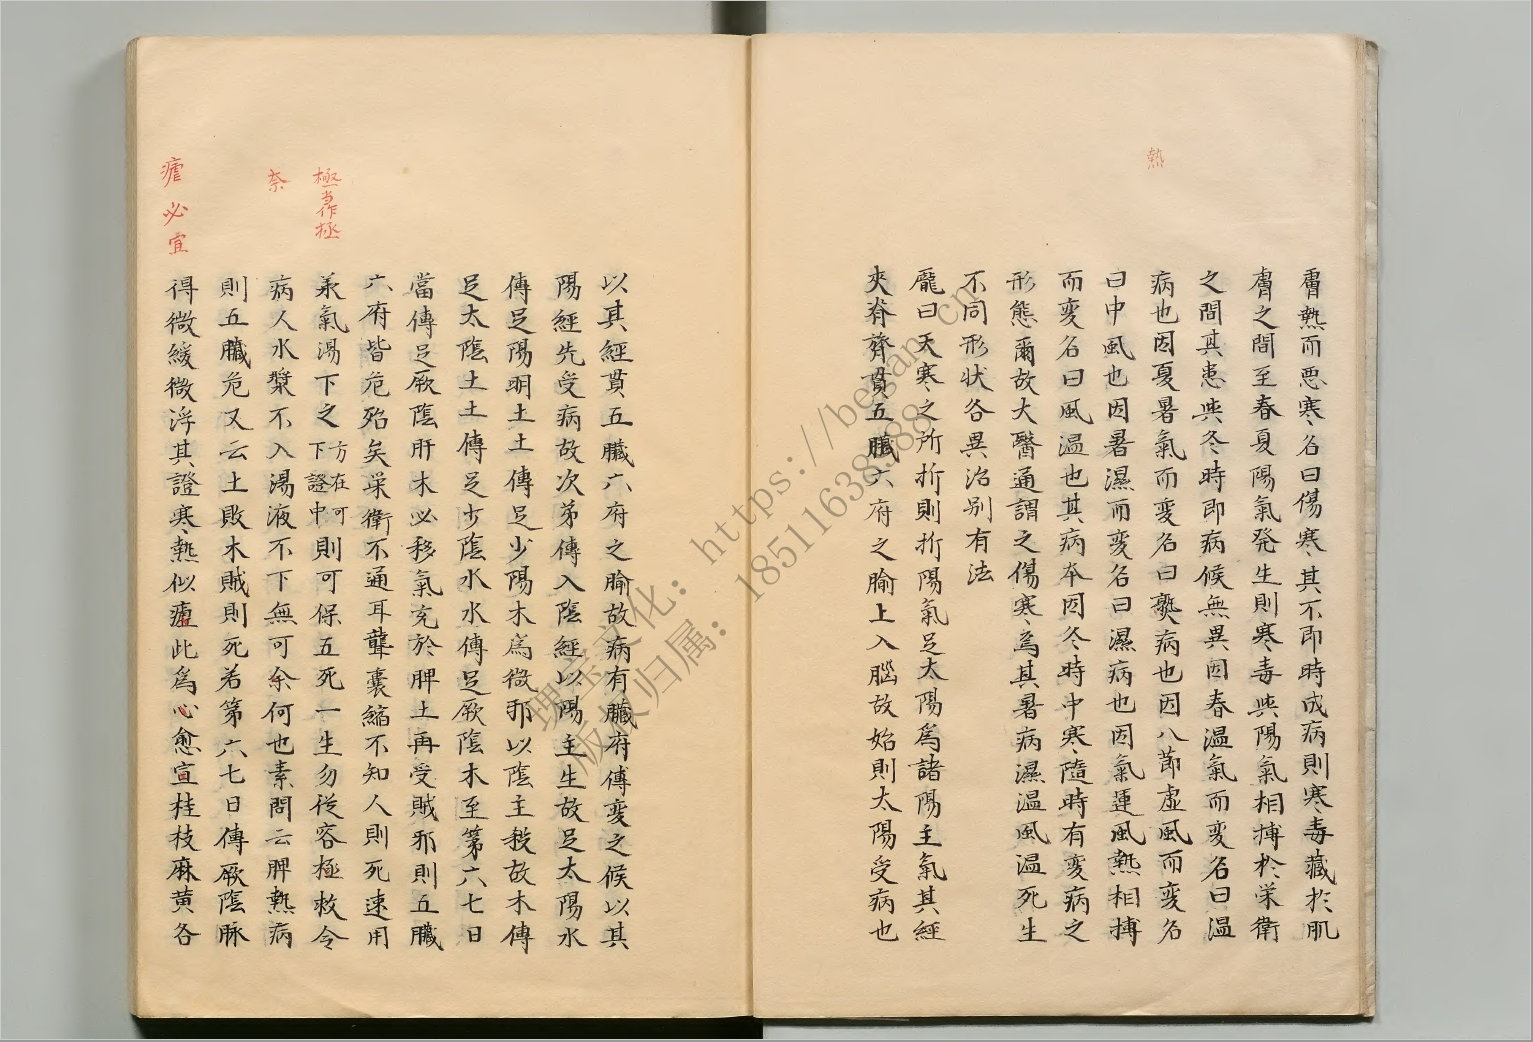 熱
膚熱而悪寒名曰傷寒其不即時成病則寒毒藏於肌
膚之間至春夏陽氣発生則寒毒與陽氣相搏於栄衛
之間其患與冬時即病候無異因春温氣而変名曰温
病也因夏暑氣而変名曰熱病也因八節虚風而変名
曰中風也因暑濕而変名曰濕病也因氣運風熱相搏
而変名曰風温也其病本因冬時中寒隨時有変病之
形態爾故大醫通謂之傷寒焉其暑病濕温風温死生
不同形状各異治別有法
龐曰天寒之所折則折陽氣足太陽為諸陽主氣其經
夾脊膂貫五臓六府之腧上入腦故始則太陽受病也
極当作拯
奈
瘧
必
宜
以其經貫五臓六府之腧故病有臓府傳変之候以其
陽經先受病故次第傳入陰經以陽主生故足太陽水
傳足陽明土土傳足少陽木為微邪以陰主殺故木傳
足太陰土土傳足少陰水水傳足厥陰木至第六七日
當傳足厥陰肝木必移氣克於脾土再受賊邪則五臓
六府皆危殆矣栄衛不通耳聾囊縮不知人則死速用
承氣湯下之方在可下證中則可保五死一生勿従容極救令
病人水漿不入湯液不下無可余何也素問云脾熱病
則五臓危又云土敗木賊則死若第六七日傳厥陰脈
得微緩微浮其證寒熱似瘧此為心愈宣桂枝麻黄各
理宝文化：https://began.cn
版权归属：18511638388